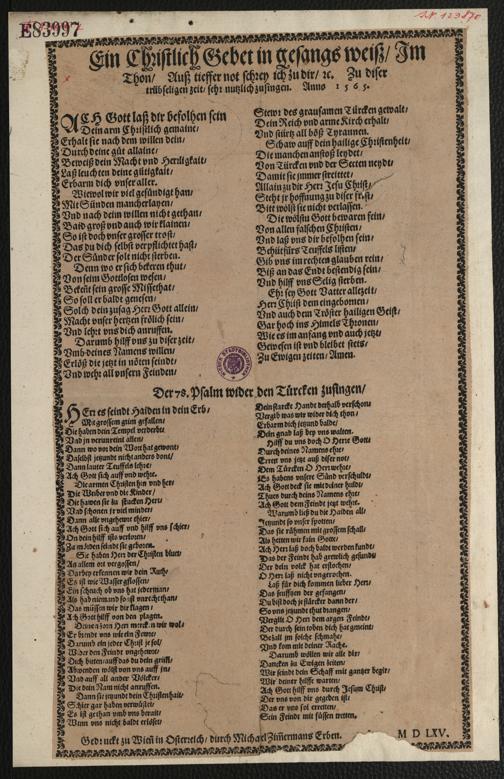 E83997
Ein Christlich Gebet in gesangs weiß/ Im
Thon/ Auß tieffer not schrey ich zu dir/ ꝛc. Zu diser
trübseligen zeit/ sehr nutzlich zusingen. Anno 1565.
ACH Gott laß dir befolhen sein
Dein arm Christlich gemaine/
Erhalt sie nach dem willen dein/
Durch deine güt allaine/
Beweiß dein Macht vnd Herligkait/
Laß leuchten deine gütigkait/
Erbarm dich vnser aller.
Wiewol wir viel gesündigt han/
Mit Sünden mancherlayen/
Vnd nach deim willen nicht gethan/
Baid groß vnd auch wir klainen/
So ist doch vnser grosser trost/
Das du dich selbst verpflichtet hast/
Der Sünder sole nicht sterben.
Denn wo er sich bekeren thut/
Von seim Gottlosen wesen/
Bekent sein grosse Missethat/
So soll er baldt genesen/
Solch dein zusag Herr Gott allein/
Macht vnser hertzen frölich sein/
Vnd lehrt vns dich anruffen.
Darumb hilff vns zu diser zeit/
Vmb deines Namens willen/
Erlöß die jetzt in nöten seindt/
Vnd wehr all vnsern Feinden/
Stewr des grausamen Türcken gewalt/
Dein Reich vnd arme Kirch erhalt/
Vnd stürtz all böß Tyrannen.
Schaw auff dein hailige Christenheit/
Die manchen anstoß leydet/
Von Türcken vnd der Secten neydt/
Damit sie jmmer streittet/
Allain zu dir Herr Jesu Christ/
Steht jr hoffnung zu diser frist/
Bitt wölst sie nicht verlassen.
Die wölstu Gott bewaren sein/
Von allen falschen Christen/
Vnd laß vns dir befolhen sein/
Behüt fürs Teuffels listen/
Gib vns im rechten glauben rein/
Biß an das End bestendig sein/
Vnd hilff vns Selig sterben.
Ehr sey Gott Vatter allezeit/
Herr Christ dem eingebornen/
Vnd auch dem Tröster hailigen Geist/
Gar hoch ins Himels Thronen/
Wie es im anfang vnd auch jetzt/
Gewesen ist vnd bleibet stets/
Zu Ewigen zeiten/ Amen.
Der 78. Psalm wider den Türcken zusingen/
HErr es seindt Haiden in dein Erb/
Mit grossem grim gefallen/
Die haben dein Tempel verderbt
Vnd jn verunreint allen/
Dann wo vor dein Wort hat gewont/
Daselbst jetzundt nicht anders dont/
Dann lauter Teuffels lehre/
Ach Gott sich auff vnd wehre.
Die armen Christen hin vnd her/
Die Weiber vnd die Kinder/
Vnd schonen jr viel minder/
Dann alle vngehewr thier/
Ach Gott sich auff vnd hilff vns schier/
On dein hilff ists verloren/
Sie haben Herr der Christen bluet/
An allem ort vergossen/
Es ist wie Wasser geflossen/
Das müssen wir dir klagen/
Ach Gott hilff von den plagen.
Darumb ein jeder Christ sol/
Wider den Feindt vngehewr/
Vnd auff all ander Völcker/
Die dein Nam nicht anruffen.
Dann sie jetzundt dein Christenhait/
Schier gar haben verwüstet/
Es ist gethan vnd vns berait/
Wenn vns nicht baldt erlöset/
Dein starcke Handt derhalb verschon/
Vergib was wir wider dich thon/
Erbarm dich jetzund balde/
Dein gnad laß bey vns walten.
Hilff du vns doch O Herre Gott/
Durch deines Namens ehr/
Errett vns jetz auß diser not/
Dem Türcken O Herr wehr/
Es habens vnsere Sünd verschuldt/
Ach Gott deck sie mit deiner huldt/
Thues durch deins Namens ehr/
Ach Gott dem Feindt jetz wehre.
Warumb liest du die Haiden all/
Jetzundt so vnser spotten/
Das sie rühmen mit grossem schall/
Als hetten wir kain Gott/
Ach Herr laß doch baldt werden kundt/
Das der Feindt hab grewlich gesündt/
Der dein volck hat erstochen/
O Herr laß nicht vngerochen.
Laß für dich kommen lieber Herr/
Das seufftzen der gefangen/
Du bist doch je stärcker dann der/
So vns jetzundt thut drangen/
Vergilt O Herr dem argen Feindt/
Bezall jm solche schmahe/
Vnd kom mit deiner Rache.
Darumb wöllen wir alle dir/
Dancken zu Ewigen zeiten/
Wir seindt dein Schaff mit gantzer begir/
Wir deiner hilffe warten/
Ach Gott hilff vns durch Jesum Christ/
Der vns von dir gegeben ist/
Das vns er sol erretten/
Sein Feindt mit füssen tretten.
Gedruckt zu Wien in Osterreich/ durch Michael Zimmermans Erben. M D LXV.